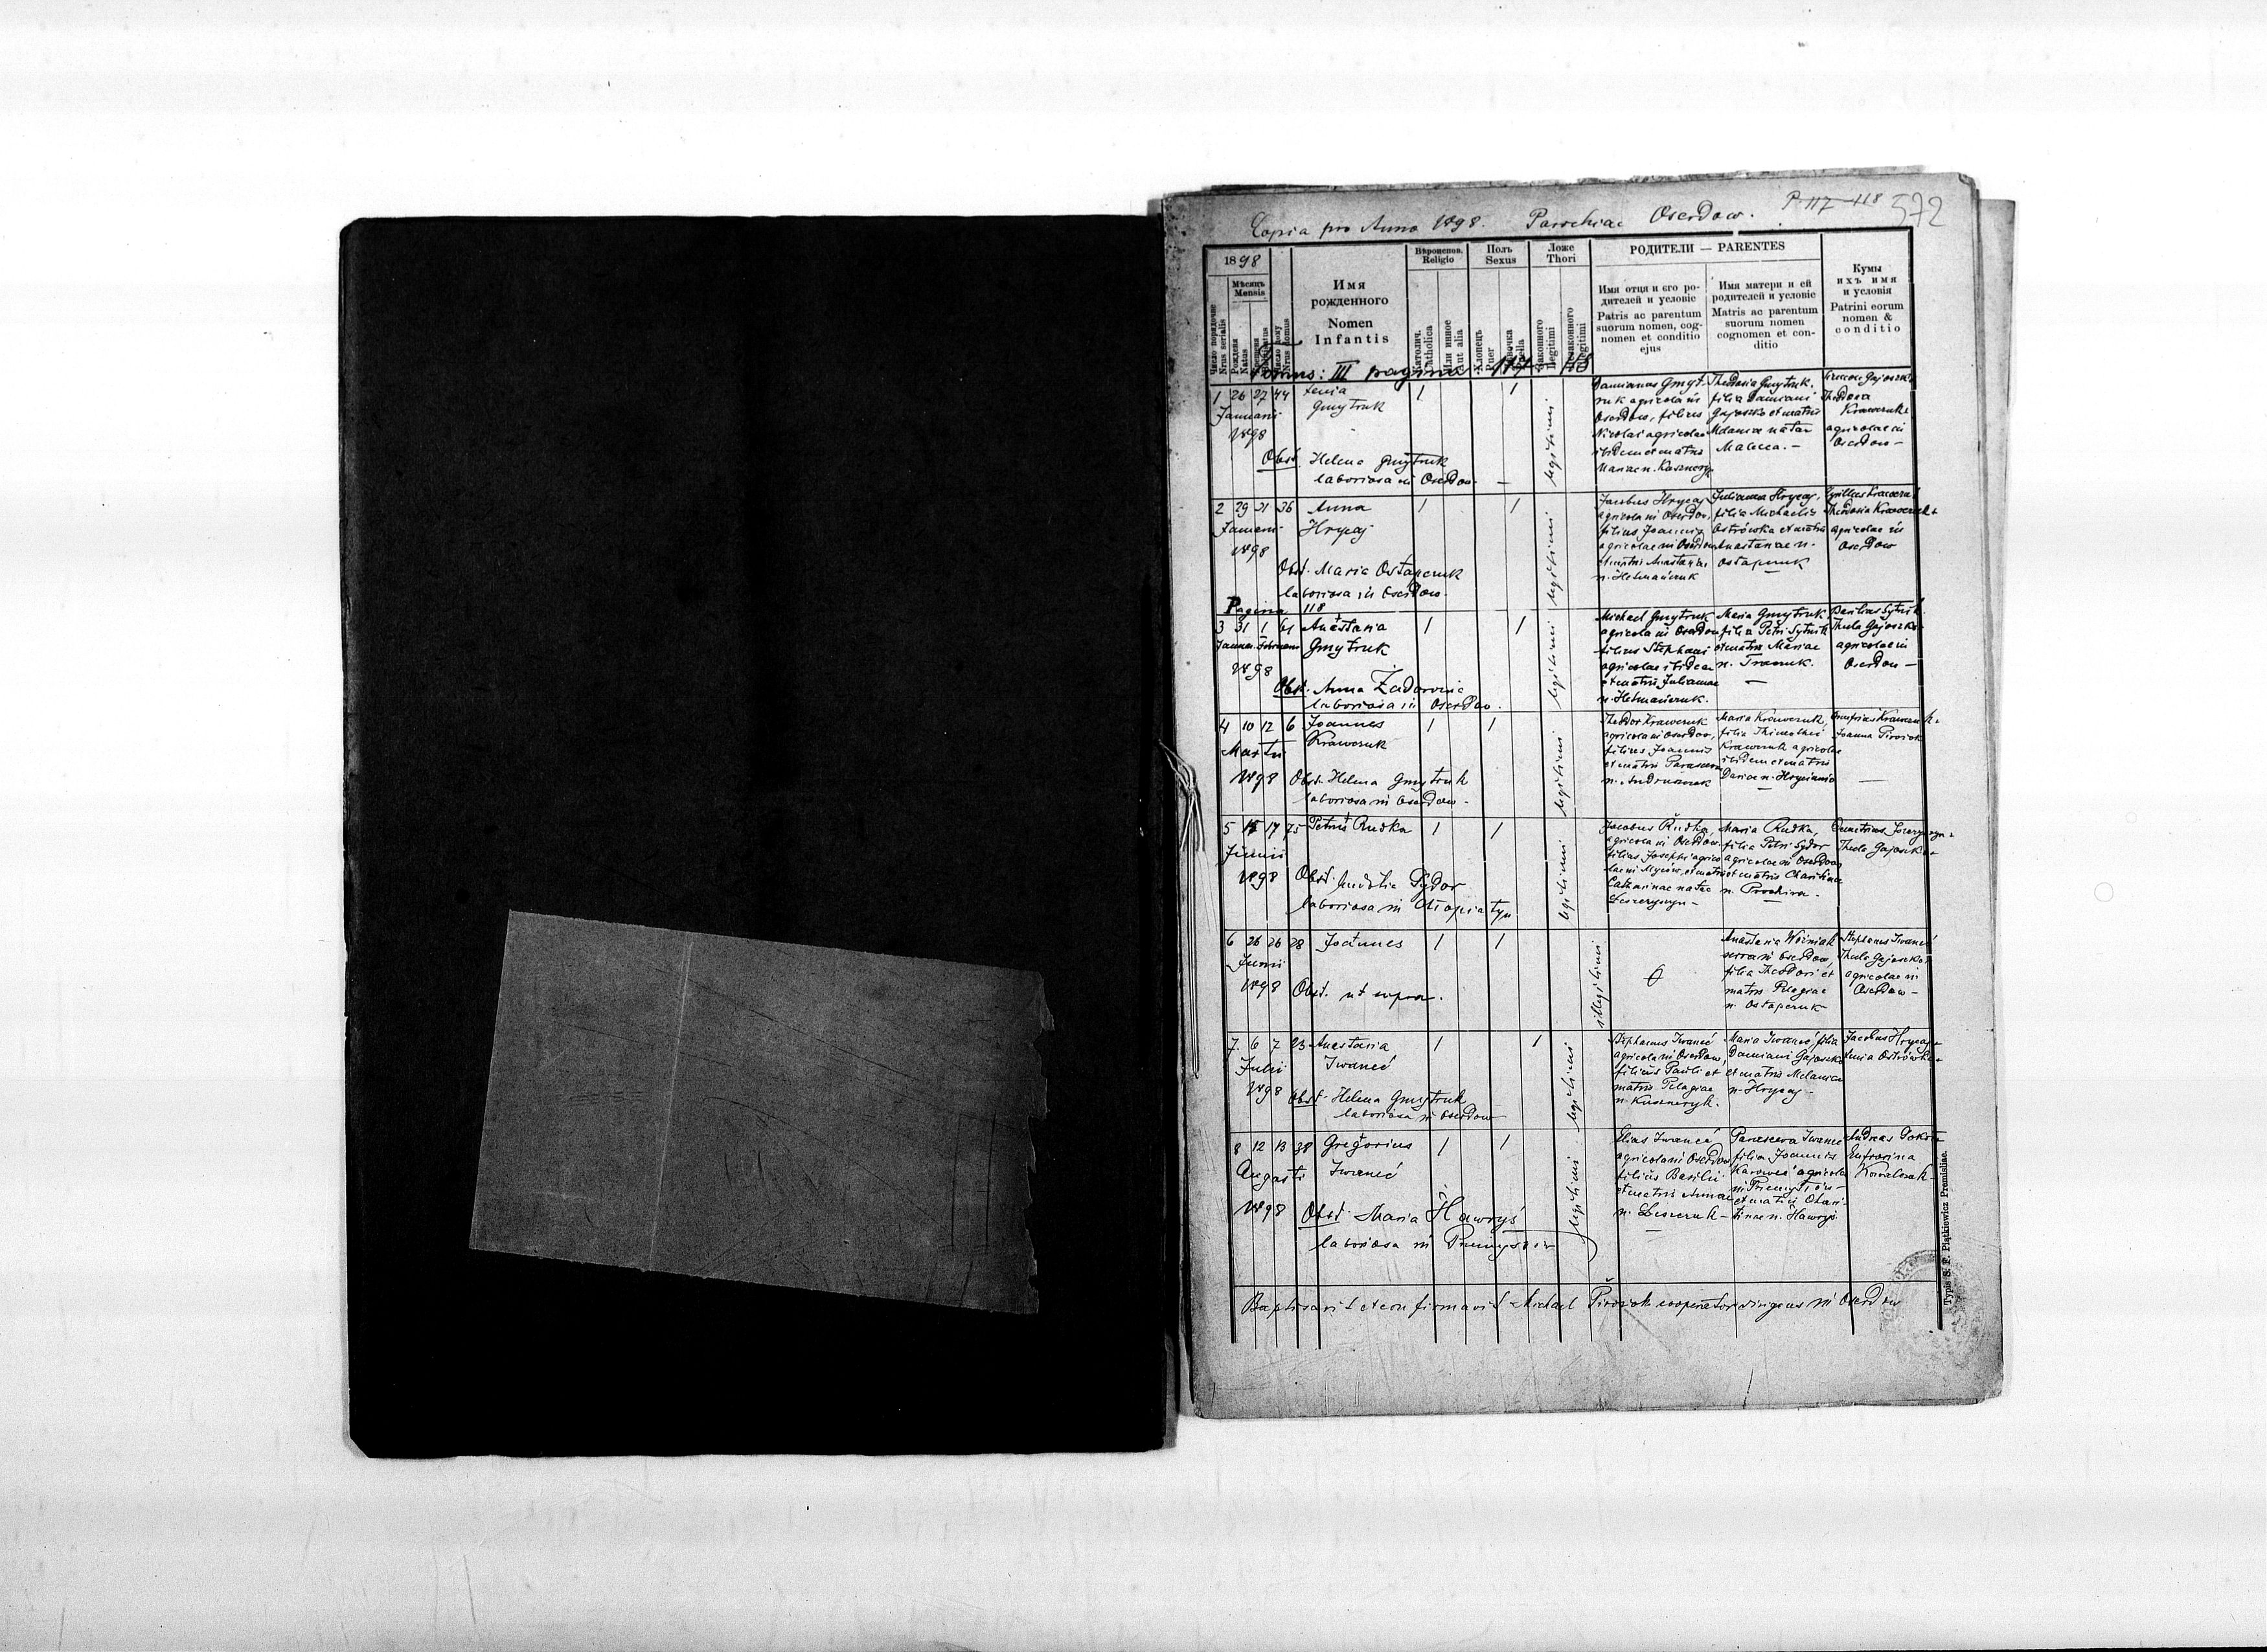 Copia pro Anno 1898. Parochiae Oserdow. P 117-118 572
1898
Мѣсяць
Mensis
Число порядочне
Nrus serialis
Рождења
Natus
Число дому
Nrus domus
Имя
рожденного
Nomen
Infantis
Вѣроиспов.
Religio
Католич.
Catholica
Или инное
Aut alia
Полъ
Sexus
Хлопець
Puer
Дѣвочка
Puella
Ложе
Thori
Законного
Legitimi
Незаконного
Illegitimi
РОДИТЕЛИ — PARENTES
Имя отця и єго ро-
дителей и условіє
Patris ac parentum
suorum nomen, cog-
nomen et conditio
ejus
Имя матери и єй
родителей и условіє
Matris ac parentum
suorum nomen
cognomen et con-
ditio
Кумы
ихъ имя
и условія
Patrini eorum
nomen &
conditio
Tomus: III pagina 117 118
1 26 27 44 Xenia
Januarii Gmytruk
1898
Obst. Helena Gmytruk
laboriosa in Oserdow
legitimi
Damianus Gmyt-
ruk agricola in
Oserdow, filius
Nicolai agricolae
ibidem et matris
Mariae n.
Theodosia Gmytruk,
filia Damiani
Gajoszko et matris
Melaniae natae
Theodora
Krawczuk
agricolae in
Oserdow
2 29 31 36 Anna
Januarii Hrycaj
1898
Obst. Maria Ostapczuk
laboriosa in Oserdow
legitimi
Jacobus Hrycaj
agricola in Oserdow,
filius Joannis
agricolae in Oserdow
et matris Anastasiae
n. Hetmańczuk
Julianna Hrycaj,
filia Michaelis
Ostrówka et matris
Anastasiae n.
Ostapczuk
Cyrillus Krawczuk
Theodosia Krawczuk
agricolae in
Oserdow
Pagina 118
3 31 1 61 Anastasia
Januar. Februarii Gmytruk
1898
Obst. Anna Zadorożna
laboriosa in Oserdow.
legitimi
Michael Gmytruk
agricola in Oserdow
filius Stephani
agricolae ibidem
et matris Julianae
n. Hetmańczuk.
Maria Gmytruk
filia Petri Sytnik
et matris Mariae
n.
Basilius Sytnik
Thecla Gajoszko
agricolae in
Oserdow
4 10 12 6 Joannes
Martii Krawczuk
1898 Obst. Helena Gmytruk
laboriosa in Oserdow
legitimi
Theodor Krawczuk
agricola in Oserdow,
filius Joannis
et matris Parascevae
n.
Maria Krawczuk,
filia Thimothei
Krawczuk agricolae
ibidem et matris
Dariae n.
Onufrius Krawczuk
Joanna Pirożok
5 15 17 75 Petrus Rudka
Junii
1898 Obst. Sydor
laboriosa in Chłopiatyn
legitimi
Jacobus Rudka,
agricola in Oserdow
filius Josephi agrico-
lae in Myców, et matris
Catharinae natae
Maria Rudka,
filia Petri Sydor
agricolae in Oserdow
et matris Charitinae
n.
Demetrius
Thecla Gajoszko
6 26 26 28 Joannes
Junii
1898 Obst. ut supra.
illegitimi
Anastasia Woźniak
serva in Oserdow,
filia Theodori et
matris Pelagiae
n. Ostapczuk
Stephanus Iwaneć
Thecla Gajoszko
agricolae in
Oserdow
7. 6 7 23 Anastasia
Julii Iwaneć
1898 Obst. Helena Gmytruk
laboriosa in Oserdow
legitimi
Stephanus Iwaneć
agricola in Oserdow,
filius Pauli et
matris Pelagiae
n. Kuszneryk.
Maria Iwaneć, filia
Damiani Gajoszko
et matris Melaniae
n. Hrycaj
Jacobus Hrycaj
8 12 13 38 Gregorius
Augusti Iwaneć
1898 Obst. Maria Hawryś
laboriosa in Przemysłów
legitimi
Elias Iwaneć
agricola in Oserdow
filius Basilii
et matris Annae
n. Leszczuk
Parasceva Iwaneć
filia Joannis
agricolae
in Przemysłów
et matris Chari-
tinae n. Hawryś
Andreas
Eufrosina
Kowalczuk
Baptisavit et confirmavit Michael Pirożok cooperator dirigens in Oserdow
Typis S. F. Piątkiewicz Premisliae.